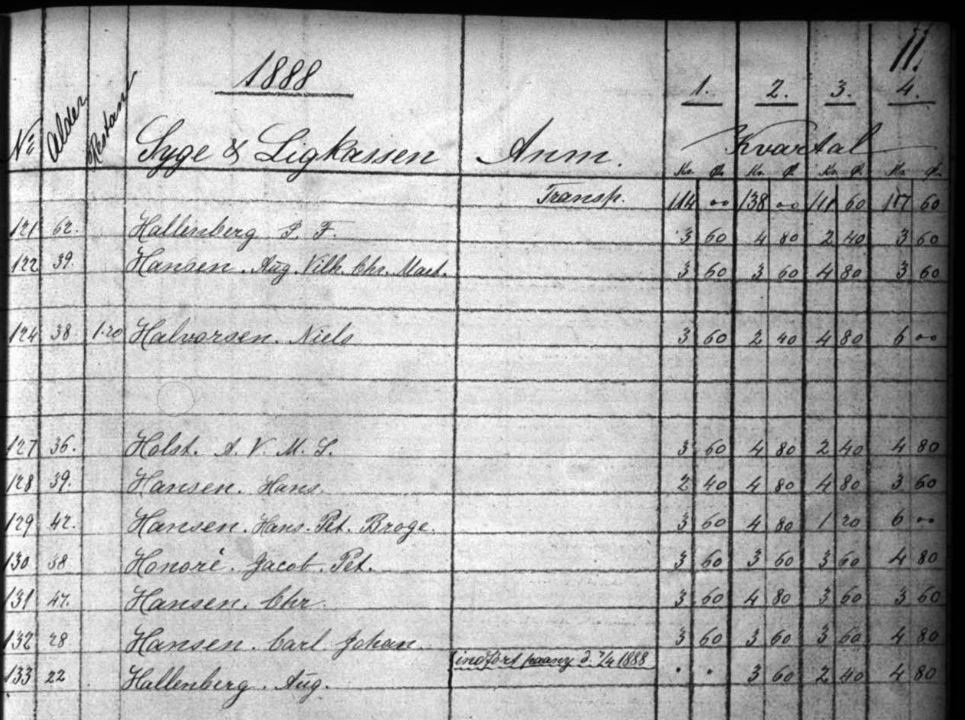 11.
1888
1. 2. 3. 4.
No Alder Restant Syge & Ligkassen Anm. Kvartal
Kr. Ø. Kr. Ø. Kr. Ø. Kr. Ø.
Transp. 114 00 138 00 111 60 117 60
121 62. Hallenberg P. F. 3 60 4 80 2 40 3 60
122 39. Hansen. Aug. Vilh. Chr. Mart. 3 60 3 60 4 80 3 60
124 38 1.20 Halvorsen. Niels 3 60 2 40 4 80 6 00
127 36. Holst. A. V. M. S. 3 60 4 80 2 40 4 80
128 39. Hansen. Hans. 2 40 4 80 4 80 3 60
129 42. Hansen. Hans. Pet. Broge. 3 60 4 80 1 20 6 00
130 58 Honoré. Jacob. Pet. 3 60 3 60 3 60 4 80
131 47. Hansen. Chr. 3 60 4 80 3 60 3 60
132 28 Hansen. Carl Johan. 3 60 3 60 3 60 4 80
indført paany d. 7/4 1888
133 22 Hallenberg. Aug. . . 3 60 2 40 4 80